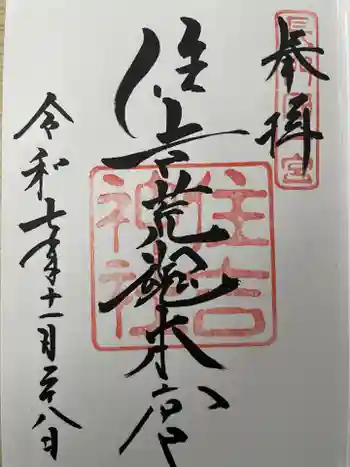 奉拝
長門國一宮
住吉荒魂本宮
住吉神社
令和七年十一月二十八日